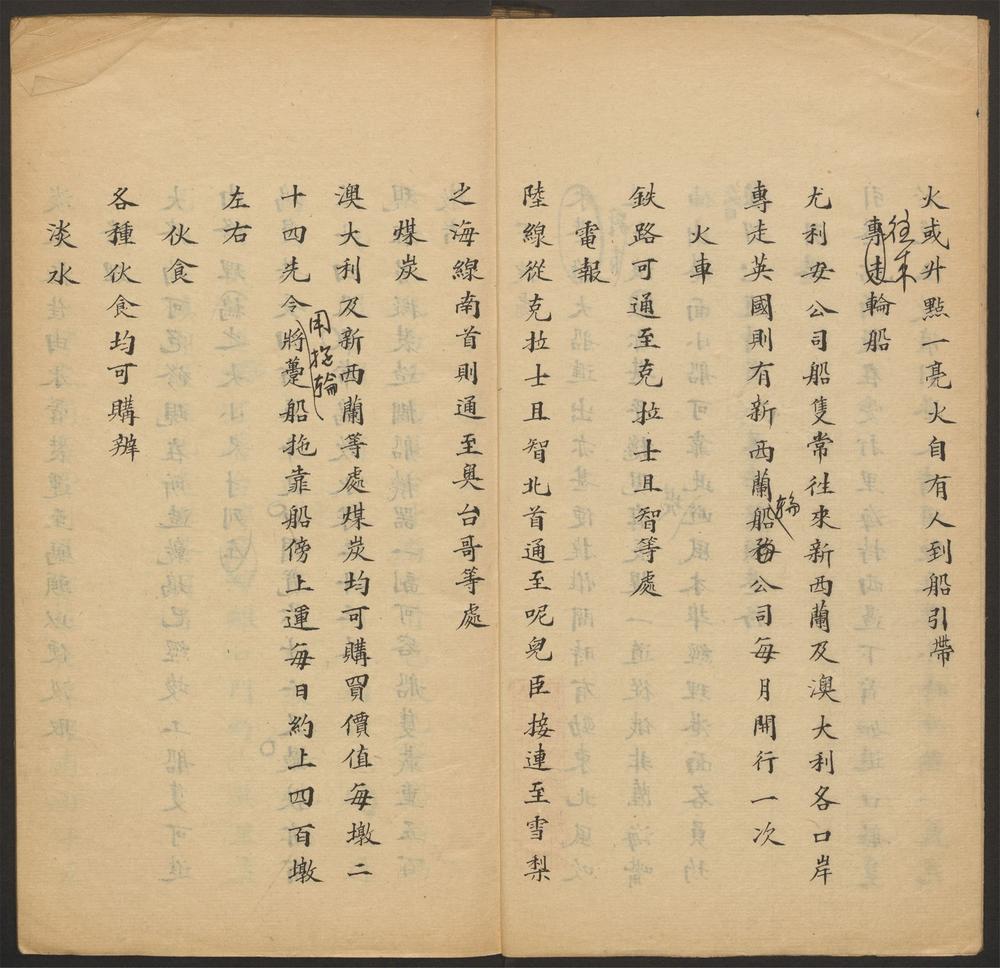 火或升點一亮火自有人到船引帶
往來
專走輪船
尤利安公司船隻常往來新西蘭及澳大利各口岸
專走英國則有新西蘭船務公司每月開行一次
輪
火車
鉄路可通至克拉士且智等處
電報
陸線從克拉士且智北首通至呢兒臣接連至雪梨
之海線南首則通至奥台哥等處
煤炭
澳大利及新西蘭等處煤炭均可購買價值每墩二
十四先令將躉船拖靠船傍上運每日約上四百墩
用拖輪
左右
伙食
各種伙食均可購辦
淡水